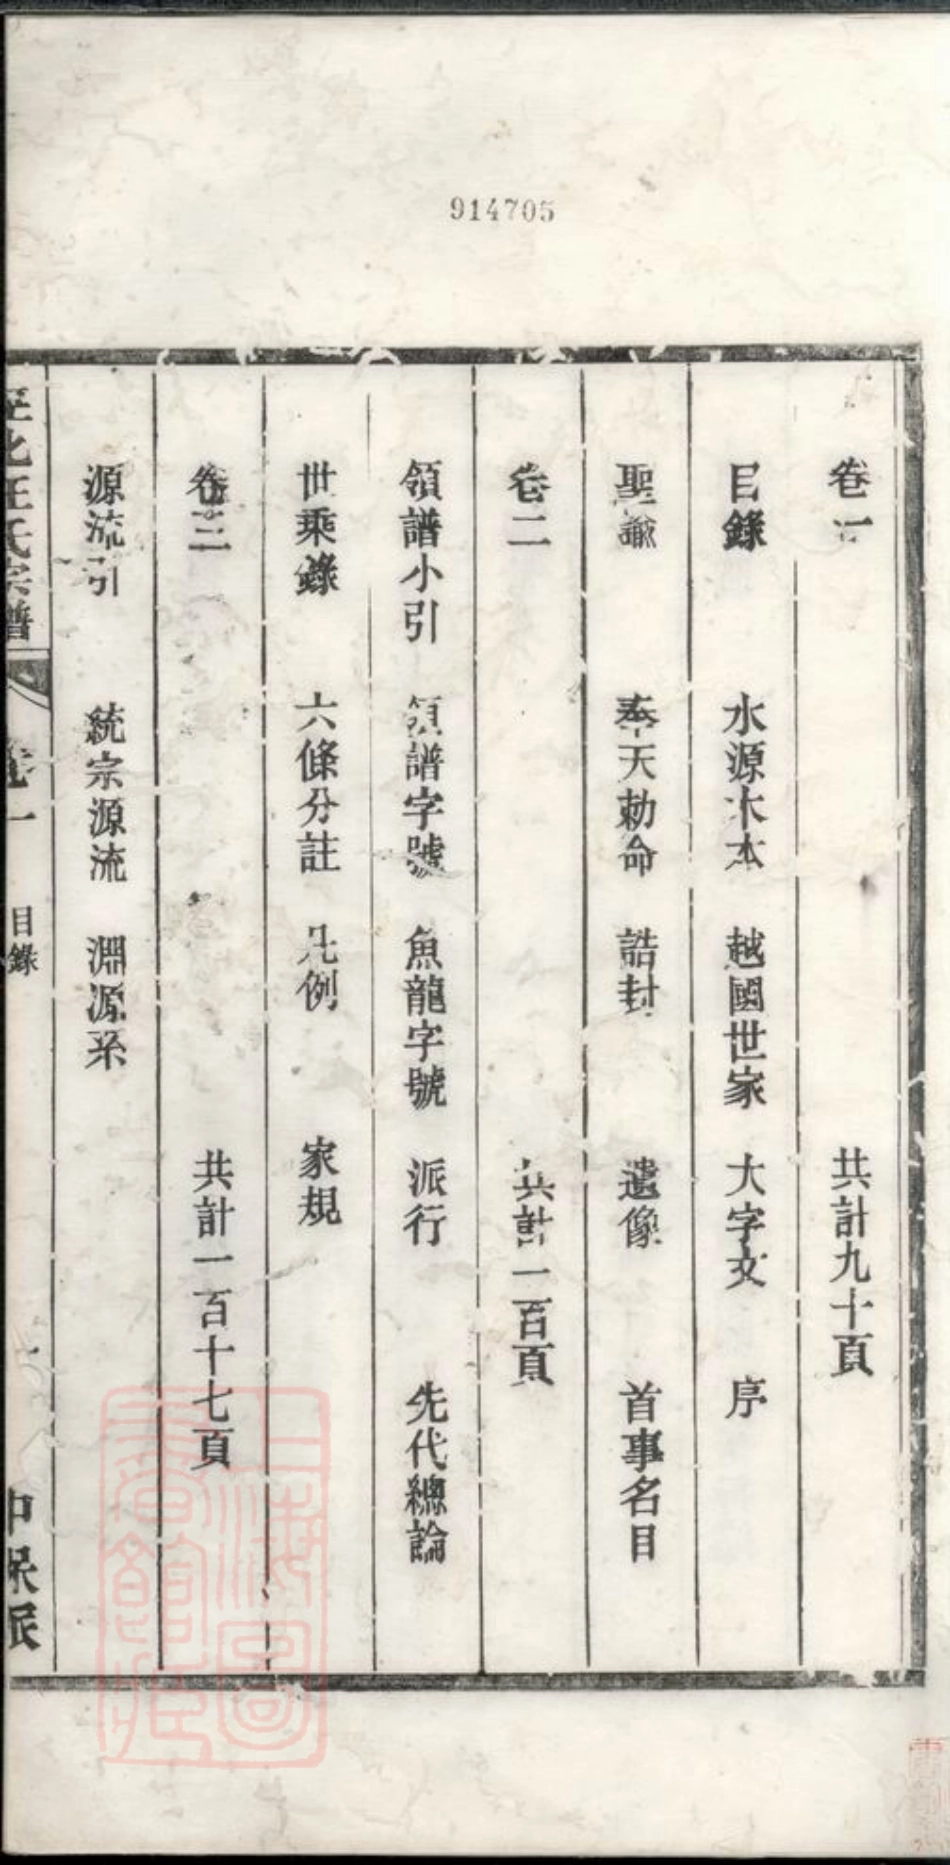 914705
卷一 共計九十頁
目錄 水源木本 越國世家 大字文 序
聖諭 奉天勅命 誥封 遺像 首事名目
卷二 共計一百頁
領譜小引 領譜字號 魚龍字號 派行 先代總論
世乘錄 六條分註 凡例 家規
卷三 共計一百十七頁
源流引 統宗源流 淵源系
汪氏宗譜 卷一 目錄
上海圖書館藏